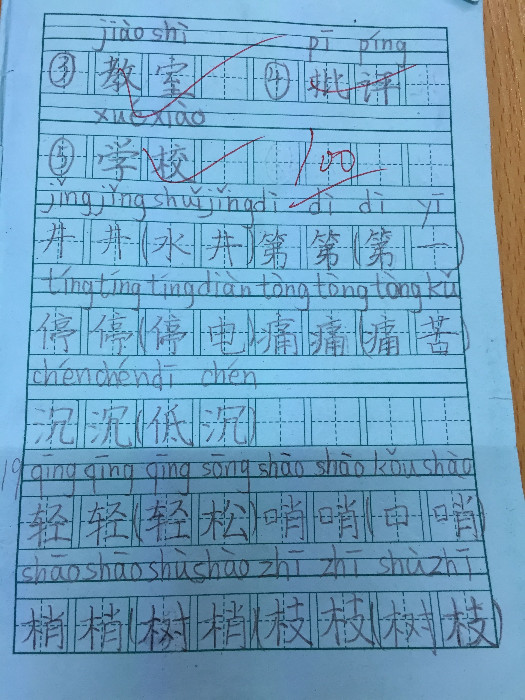 jiào shì pī píng
③ 教 室 ④ 批 评
xué xiào
⑤ 学 校 100
jǐng jǐng shuǐ jǐng dì dì dì yī
井 井 (水 井) 第 第 (第 一)
tíng tíng tíng diàn tòng tòng tòng kǔ
停 停 (停 电) 痛 痛 (痛 苦)
chén chén dī chén
沉 沉 (低 沉)
19 qīng qīng qīng sōng shào shào kǒu shào
轻 轻 (轻 松) 哨 哨 (口 哨)
shāo shāo shù shāo zhī zhī shù zhī
梢 梢 (树 梢) (枝 枝 (树 枝)